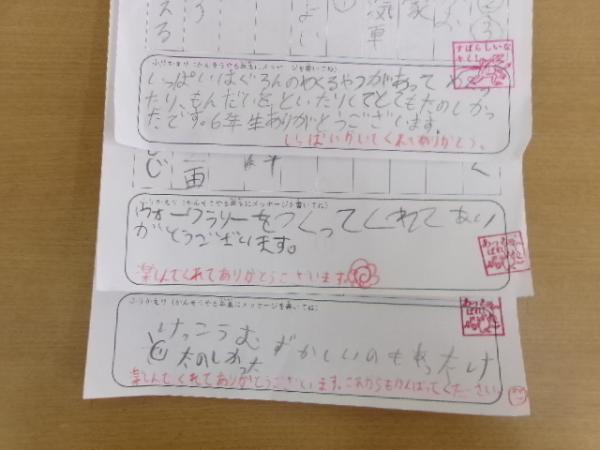 ふりかえり(かんそうやる年生にメッセージを書いてね)
いっぱいはぐるんのめくるやつがあって めくっ
たり、もんだいをといたりしてとてもたのしかっ
たです。6年生ありがとうございます。
いっぱいかいてくれてありがとう。
すばらしいな
ふりかえり(かんそうや6年生にメッセージを書いてね)
ウォークラリーをつくってくれて あり
がとうございます。
楽しんでくれてありがとうございます。
あっぱれ
ふりかえり(かんそうや6年生にメッセージを書いてね)
けっこうむずかしいのもあったけ
どたのしかった
楽しんでくれてありがとうございます。これからもがんばってください
あっぱれ